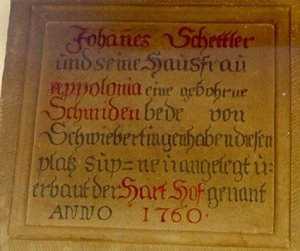 Johan̄es Schettler
und seine Hausfraü
Appolonia eine gebohrne
Schmiden bede von
Schwiebertingen haben diesen
platz süp=neü angelegt ü:
erbaut der Hart Hof genant
ANNO 1760.